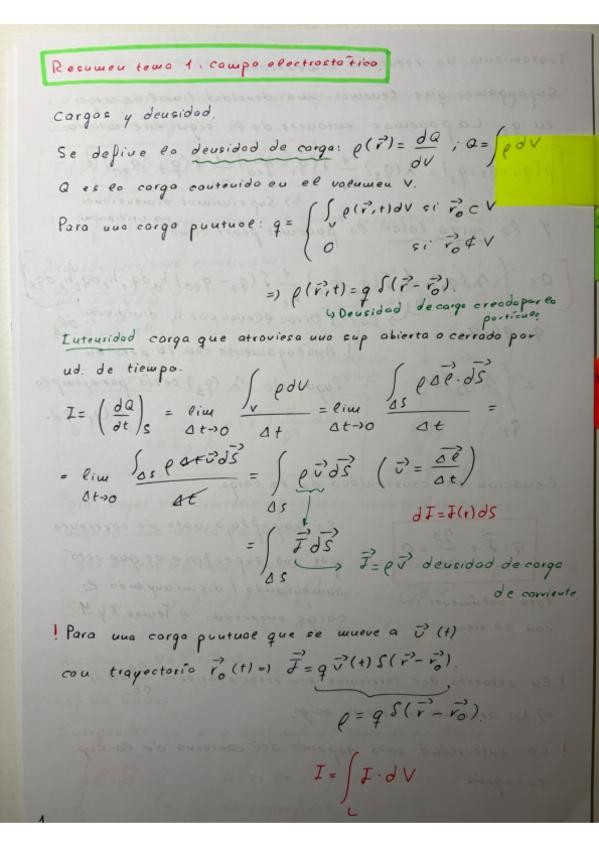 Resumen tema 1. campo electrostático.
Cargas y densidad.
Se define la densidad de carga: ρ(r⃗) = dQ/dV ; Q = ∫ρdV
Q es la carga contenida en el volumen V.
Para una carga puntual: q = { ∫_V ρ(r⃗,t)dV si r⃗₀ ⊂ V
0 si r⃗₀ ⊄ V
=> ρ(r⃗,t) = q δ(r⃗ - r⃗₀).
↳ Densidad de carga creada por la
partícula.
Intensidad carga que atraviesa una sup abierta o cerrada por
ud. de tiempo.
I = (dQ/dt)_S = lim_{Δt→0} ∫_V ρdV / Δt = lim_{Δt→0} ∫_{ΔS} ρ Δl⃗·dS⃗ / Δt =
= lim_{Δt→0} ∫_{ΔS} ρ Δt v⃗ dS⃗ / Δt = ∫_{ΔS} ρ v⃗ dS⃗ (v⃗ = Δl⃗/Δt)
dI = J(r)dS
= ∫_{ΔS} J⃗ dS⃗ → J⃗ = ρv⃗ densidad de carga
de corriente.
! Para una carga puntual que se mueve a v⃗(t)
con trayectoria r⃗₀(t) => J⃗ = q v⃗(t) δ(r⃗ - r⃗₀).
ρ = q δ(r⃗ - r⃗₀).
I = ∫_L J · dV
1